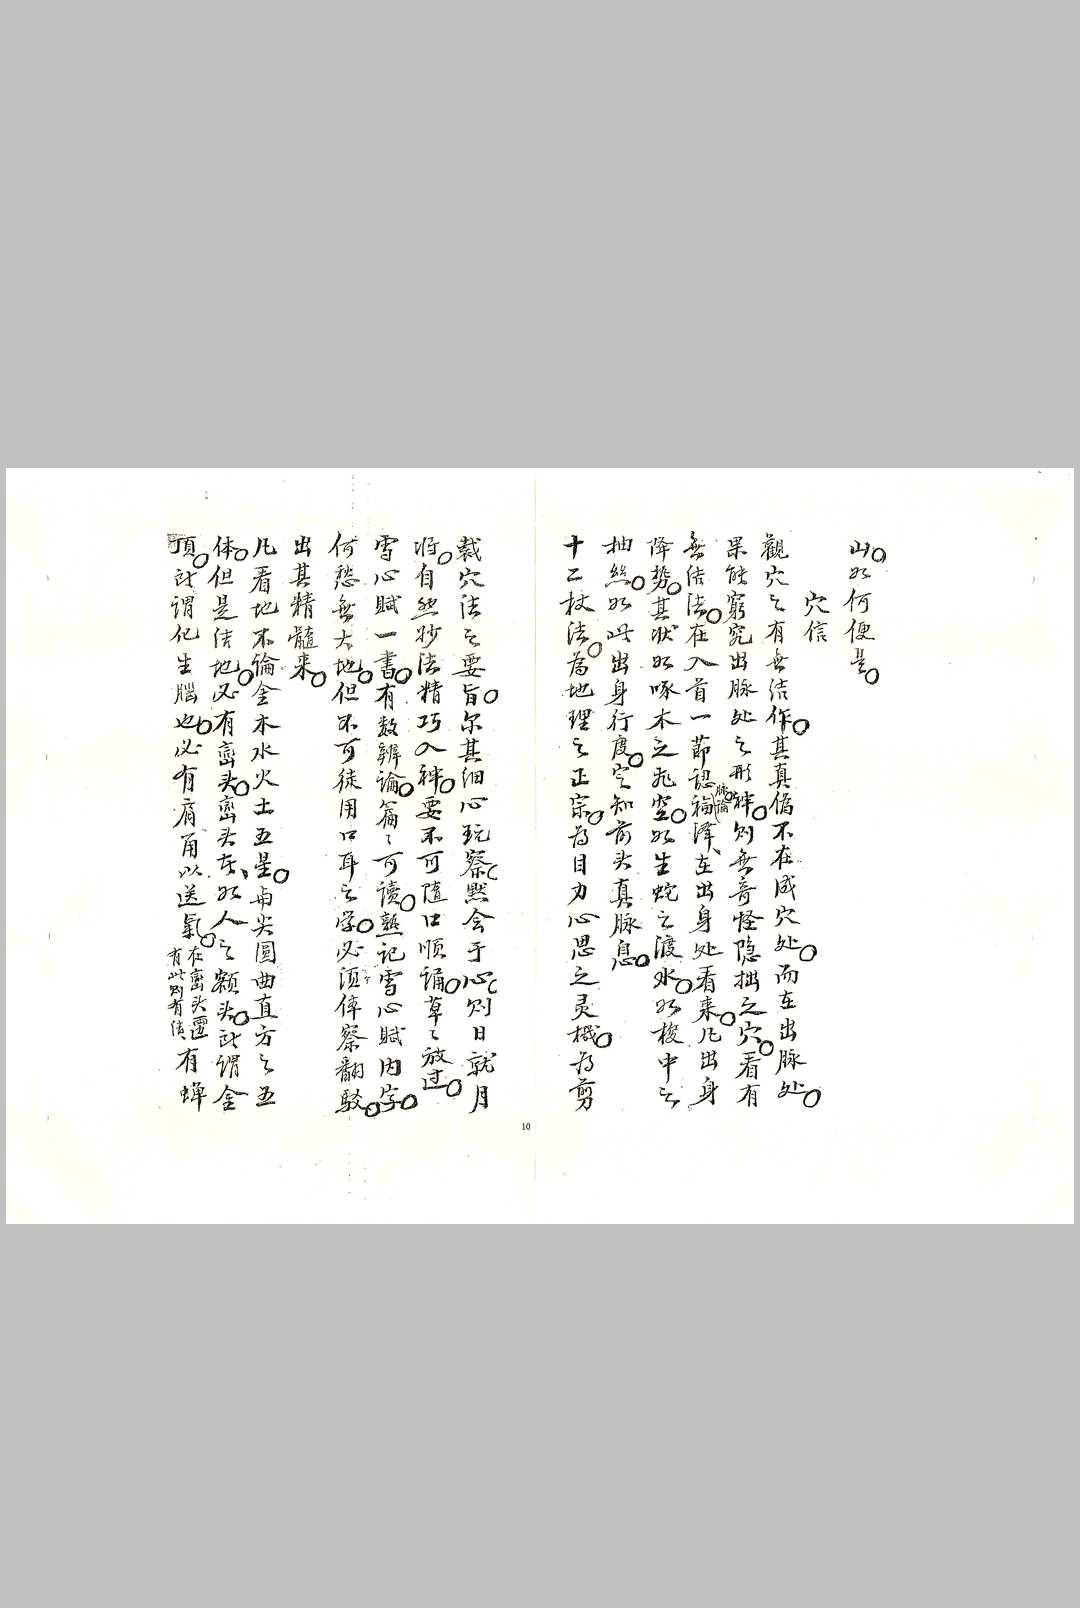 山。如何便是。
穴信
觀穴之有無结作。其真偽不在成穴处。而在出脉处。
果能窮究出脉处之形神。则無奇怪隐拙之穴。看有
無结法。在入首一節認脉論福泽、在出身处看来。凡出身
降势。其状如啄木之飛空。如生蛇之渡水。如梭中之
抽絲。如此出身行度。定知前头真脉息。
十二杖法。為地理之正宗。為目力心思之灵機。為剪
裁穴法之要旨。尔其细心玩察。默会于心。则日就月
将。自然妙法精巧入神。要不可随口顺诵。草々放过。
雪心賦一書。有数辨論。篇々可读。熟记雪心賦内字。
何愁無大地。但不可徒用口耳之学。必須体察翻駁。
出其精髓来。
凡看地不倫金木水火土五星。与尖圓曲直方之五
体。但是结地。必有巒头。巒头在、如人之额头。此謂金
頂。此谓化生腦也。必有肩甬以送氣。在巒头遷有此则有法有蟬